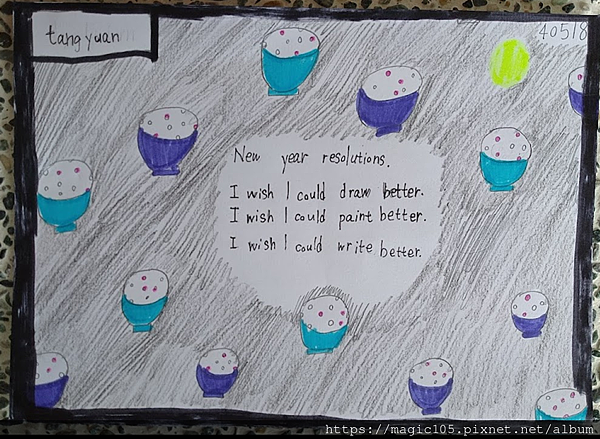 tangyuan
40518
New year resolutions.
I wish I could draw better.
I wish I could paint better.
I wish I could write better.
https://magic105.pixnet.net/album